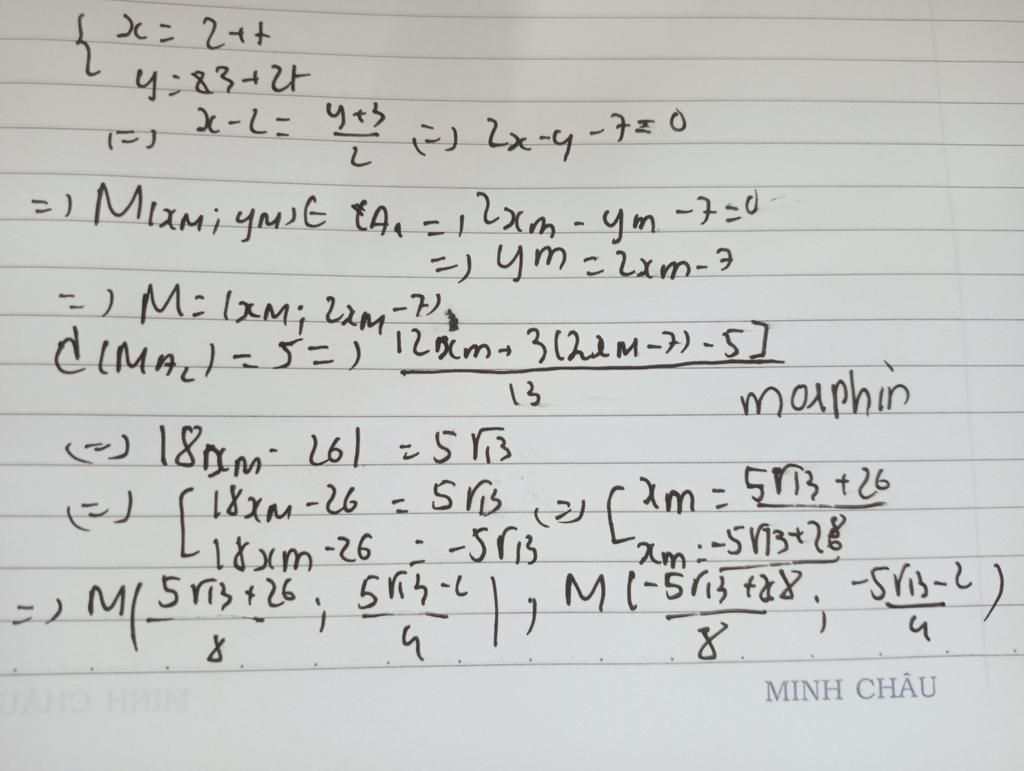 { x = 2+t
y = 83+2t
(=) x-2 = (y+3)/2 (=) 2x-y-7=0
=) M(xM; yM) ∈ tA1 =) 2xm - ym - 7=0
=) ym = 2xm-7
=) M = (xM; 2xM-7)
d(MA2) = 5 =) |2xm + 3(2xM-7) - 5]/13
morphin
(=) |8xM - 26| = 5√13
(=) [ |8xM-26 = 5√13 (=) [ xm = 5√13+26
|8xm-26 = -5√13 xm = -5√13+28/8
=) M(5√13+26/8; 5√13-2/4), M(-5√13+88/8; -5√13-2/4)
MINH CHÂU